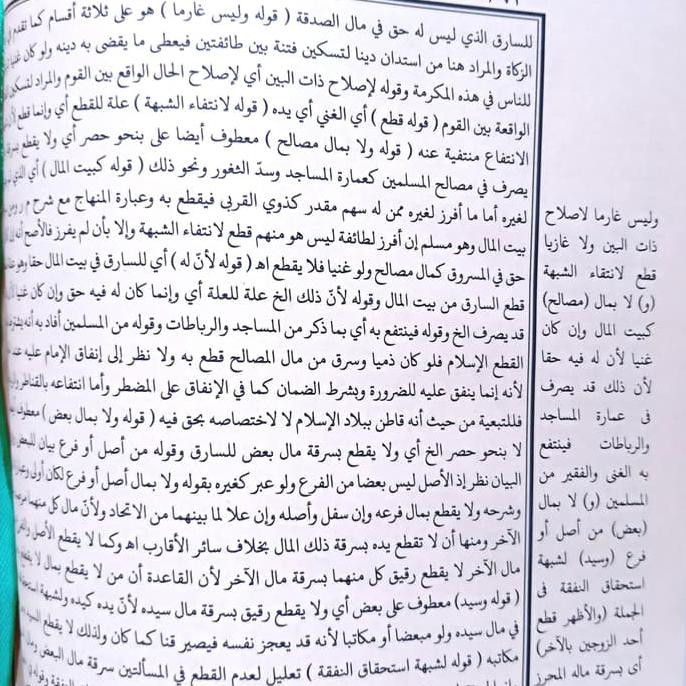 للسارق الذي ليس له حق في مال الصدقة ( قوله وليس غارما ) هو على ثلاثة أقسام كما تقدم
الزكاة والمراد هنا من استدان دينا لتسكين فتنة بين طائفتين فيعطى ما يقضى به دينه ولو كان غنيا
للناس في هذه المكرمة وقوله لإصلاح ذات البين أي لإصلاح الحال الواقع بين القوم والمراد لتسكين
الواقعة بين القوم ( قوله قطع ) أي الغني أي يده ( قوله لانتفاء الشبهة ) علة للقطع أي وإنما قطع
الانتفاع منتفية عنه ( قوله ولا بمال مصالح ) معطوف أيضا على بنحو حصر أي ولا يقطع
يصرف في مصالح المسلمين كعمارة المساجد وسدّ الثغور ونحو ذلك ( قوله كبيت المال ) أي الذي
لغيره أما ما أفرز لغيره ممن له سهم مقدر كذوي القربى فيقطع به وعبارة المنهاج مع شرح م ر ومن
بيت المال وهو مسلم إن أفرز لطائفة ليس هو منهم قطع لانتفاء الشبهة وإلا بأن لم يفرز فالأصح أنه إن
حق في المسروق كمال مصالح ولو غنيا فلا يقطع اهـ ( قوله لأنّ له ) أي للسارق في بيت المال حقا
قطع السارق من بيت المال وقوله لأنّ ذلك الخ علة للعلة أي وإنما كان له فيه حق وإن كان غنيا
قد يصرف الخ وقوله فينتفع به أي بما ذكر من المساجد والرباطات وقوله من المسلمين أفاد به أنه
القطع الإسلام فلو كان ذميا وسرق من مال المصالح قطع به ولا نظر إلى إنفاق الإمام عليه عند
لأنه إنما ينفق عليه للضرورة وبشرط الضمان كما في الإنفاق على المضطر وأما انتفاعه بالقناطر
فللتبعية من حيث أنه قاطن ببلاد الإسلام لا لاختصاصه بحق فيه ( قوله ولا بمال بعض ) معطوف
لا بنحو حصر الخ أي ولا يقطع بسرقة مال بعض للسارق وقوله من أصل أو فرع بيان للبعض
البيان نظر إذ الأصل ليس بعضا من الفرع ولو عبر كغيره بقوله ولا بمال أصل أو فرع لكان أولى
وشرحه ولا يقطع بمال فرعه وإن سفل وأصله وإن علا لما بينهما من الاتحاد ولأنّ مال كل منهما
الآخر ومنها أن لا تقطع يده بسرقة ذلك المال بخلاف سائر الأقارب اهـ وكما لا يقطع الأصل
مال الآخر لا يقطع رقيق كل منهما بسرقة مال الآخر لأن القاعدة أن من لا يقطع بمال لا
( قوله وسيد) معطوف على بعض أي ولا يقطع رقيق بسرقة مال سيده لأنّ يده كيده ولشبهة
في مال سيده ولو مبعضا أو مكاتبا لأنه قد يعجز نفسه فيصير قنا كما كان ولذلك لا يقطع السيد
مكاتبه ( قوله لشبهة استحقاق النفقة ) تعليل لعدم القطع في المسألتين سرقة مال البعض
وليس غارما لاصلاح
ذات البين ولا غازيا
قطع لانتفاء الشبهة
(و) لا بمال (مصالح)
كبيت المال وإن كان
غنيا لأن له فيه حقا
لأن ذلك قد يصرف
فى عمارة المساجد
والرباطات فينتفع
به الغنى والفقير من
المسلمين (و) لا بمال
(بعض) من أصل أو
فرع (وسيد) لشبهة
استحقاق النفقة فى
الجملة (والأظهر قطع
أحد الزوجين بالآخر)
أى بسرقة ماله المحرز